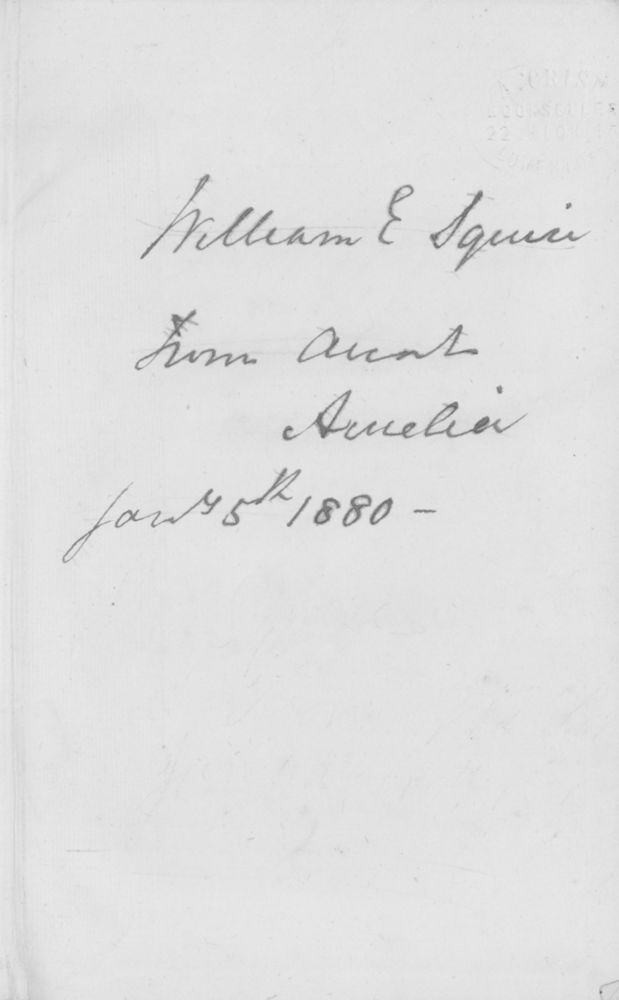 William E Squire
From Aunt
Amelia
Jany 5th 1880 -